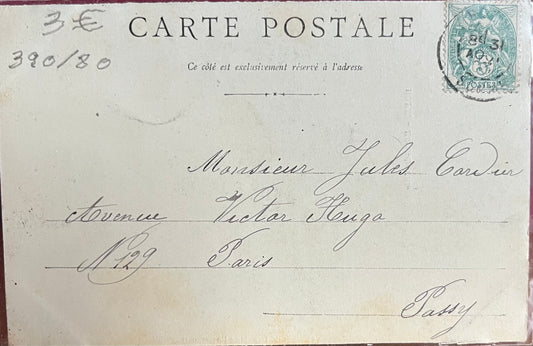 3 €
390/80
CARTE POSTALE
Ce côté est exclusivement réservé à l'adresse
Monsieur Jules Cordier
Avenue Victor Hugo
N° 129 Paris
Passy